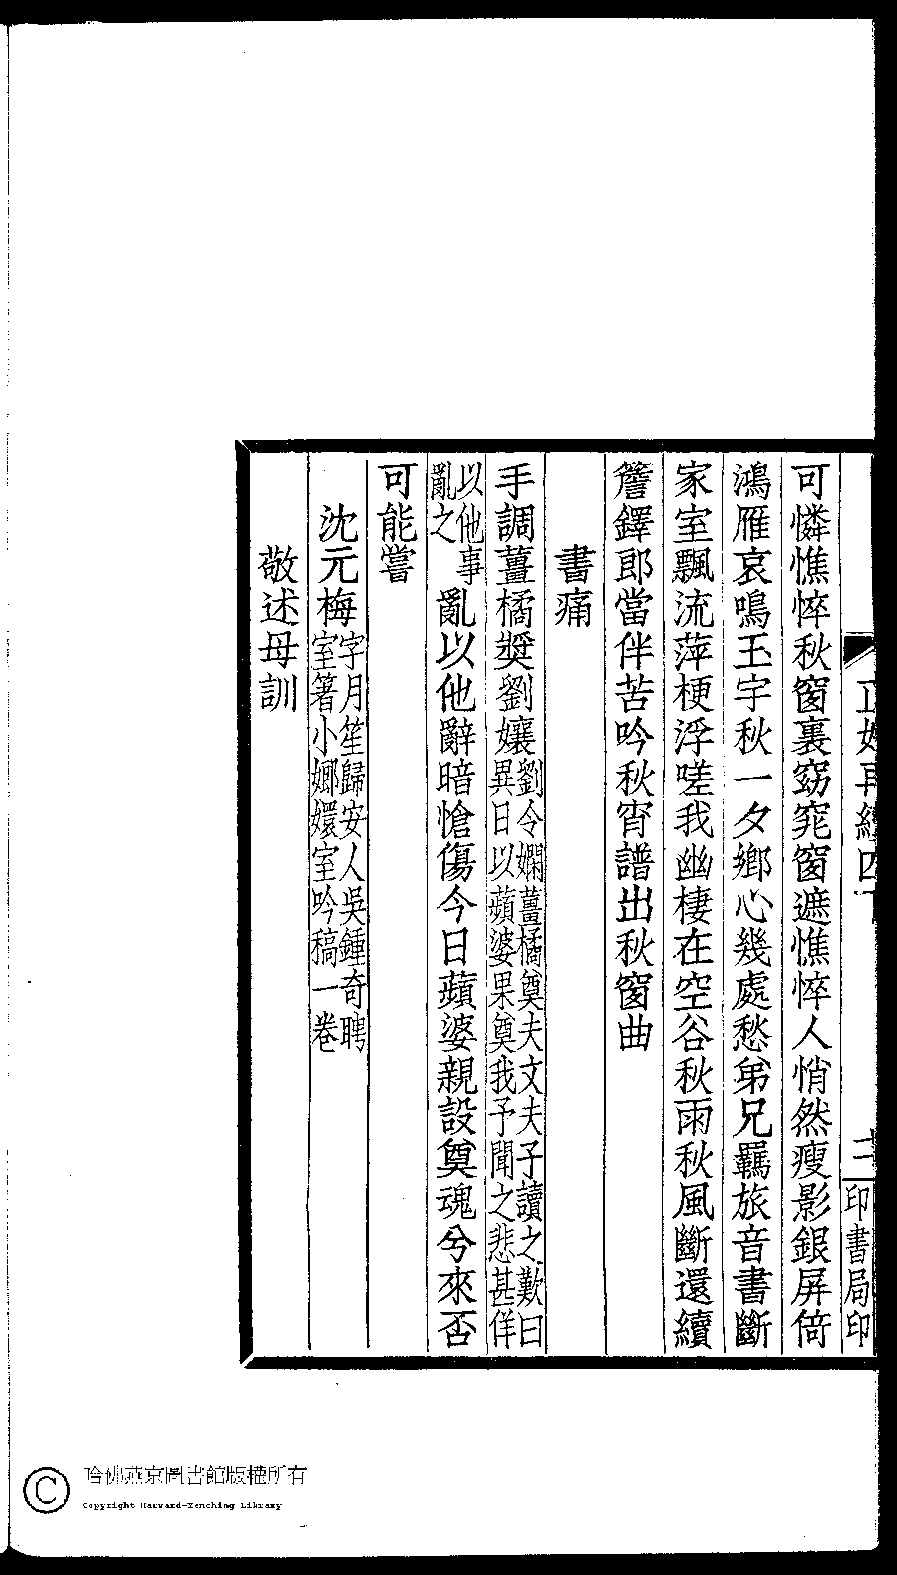 正始再續四
印書局印
可憐憔悴秋窗裏窈窕窗遮憔悴人悄然瘦影銀屏倚
鴻雁哀鳴玉宇秋一夕鄉心幾處愁弟兄羈旅音書斷
家室飄流萍梗浮嗟我幽棲在空谷秋雨秋風斷還續
簷鐸郎當伴苦吟秋宵譜出秋窗曲
書痛
手調薑橘奬劉孃劉令嫻薑橘奠夫文夫子讀之歎曰異日以蘋婆果奠我予聞之悲甚佯
以他事亂之亂以他辭暗愴傷今日蘋婆親設奠魂兮來否
可能嘗
沈元梅字月笙歸安人吳鍾奇聘室箸小嫏嬛室吟稿一卷
敬述母訓
哈佛燕京圖書館版權所有
Copyright Harvard-Yenching Library